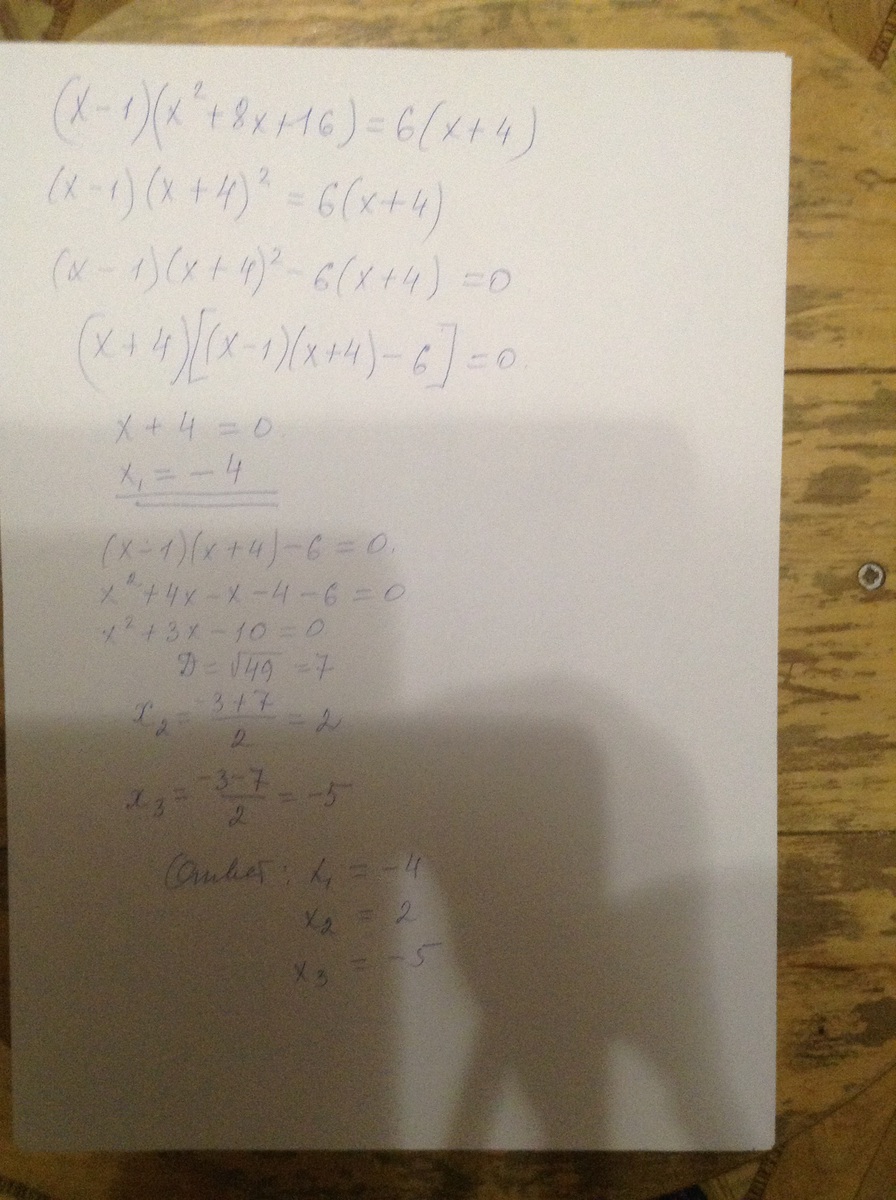 (x-1)(x²+8x+16)=6(x+4)
(x-1)(x+4)²=6(x+4)
(x-1)(x+4)²-6(x+4)=0
(x+4)[(x-1)(x+4)-6]=0.
x+4=0.
x₁=-4
(x-1)(x+4)-6=0.
x²+4x-x-4-6=0
x²+3x-10=0
D=√49=7
x₂=\frac{-3+7}{2}=2
x₃=\frac{-3-7}{2}=-5
Ответ: x₁=-4
x₂=2
x₃=-5